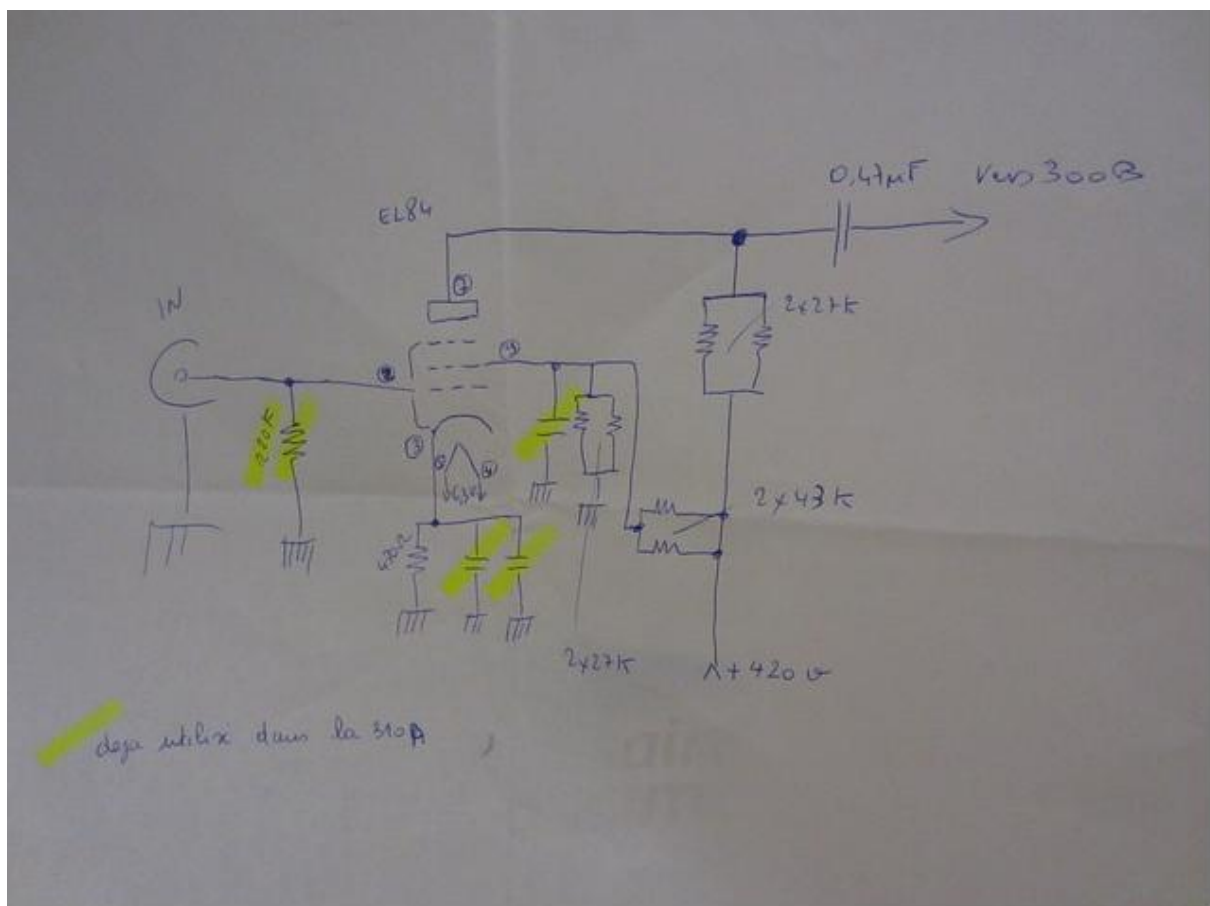 0,47µF vers 300B
EL84
IN
7
2x27K
9
2
220K
3
6,3V
2x43K
2x27K
+420V
deja utilisé dans la 310A